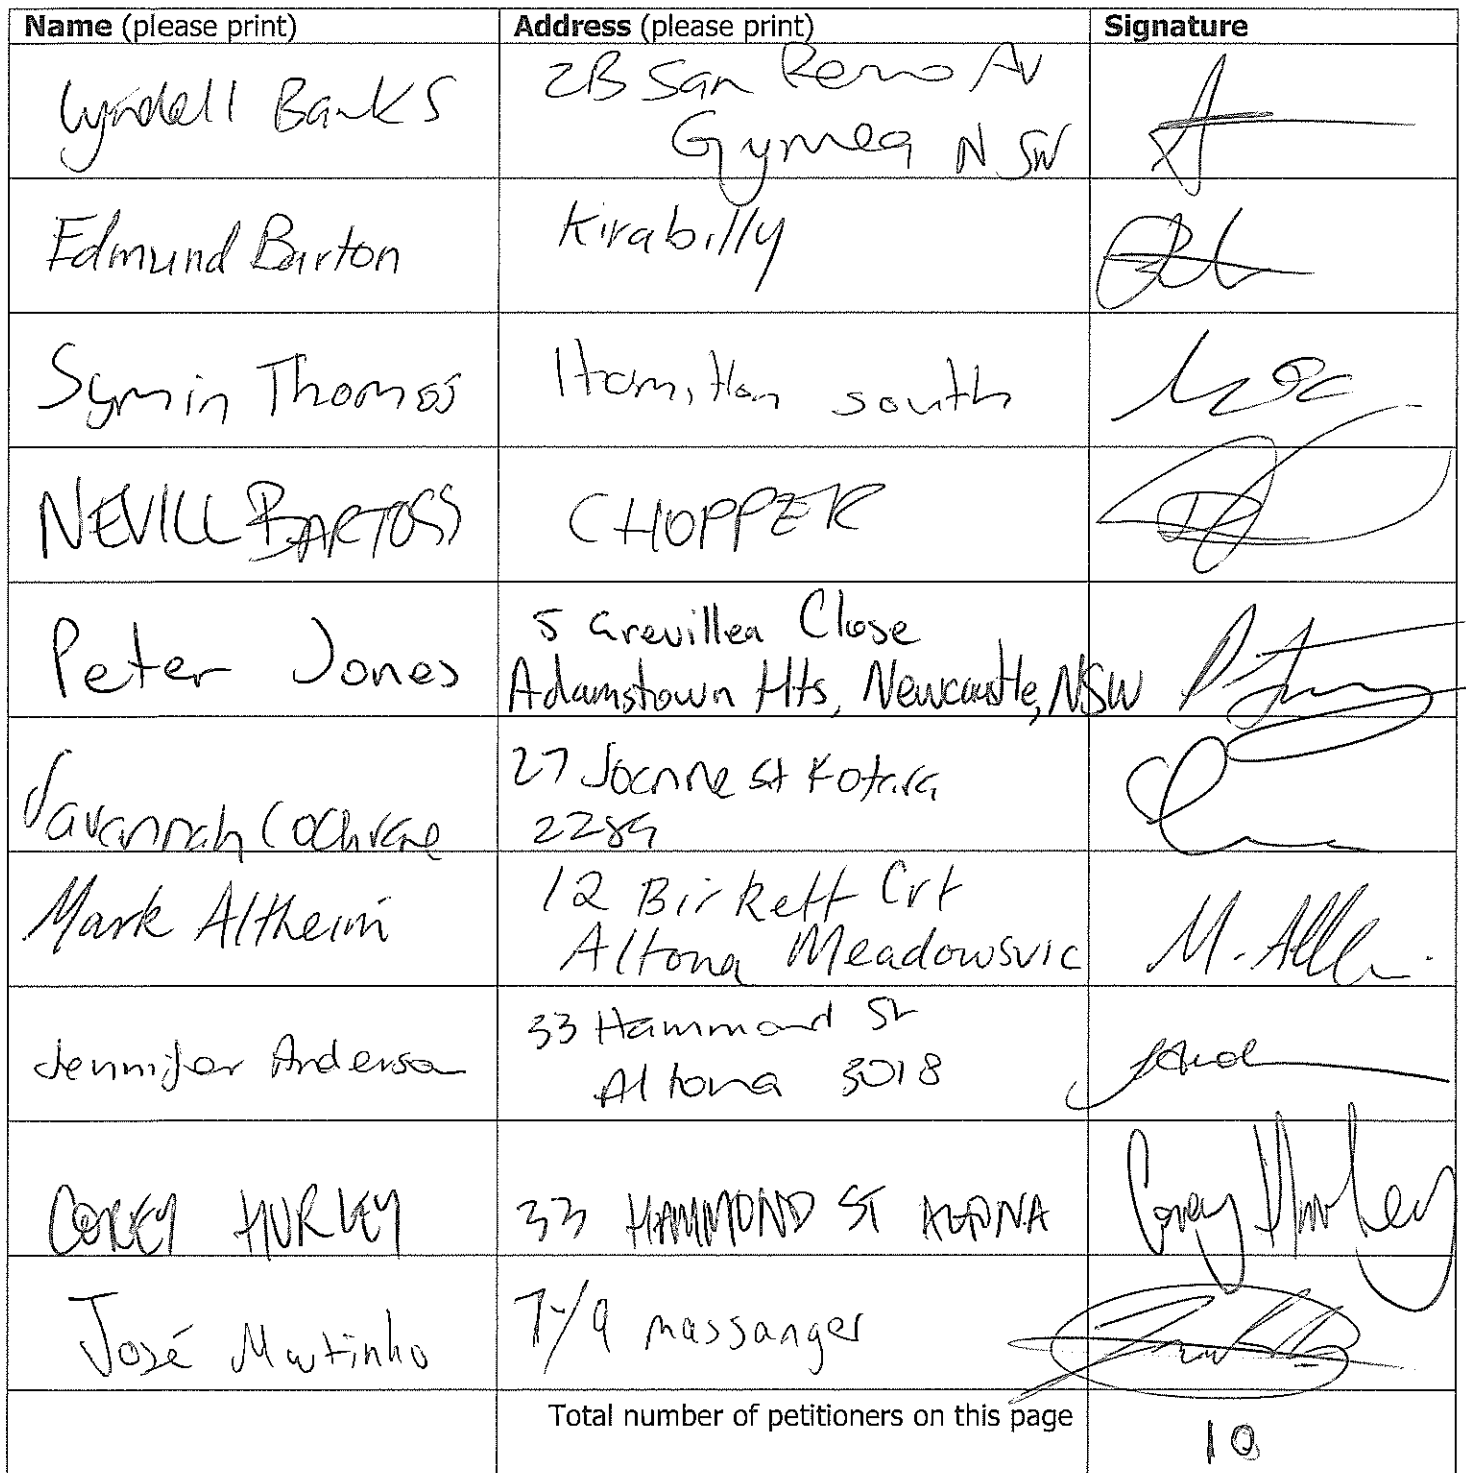 Name (please print) Address (please print) Signature
Lyndell Banks 2B San Remo Av
Gymea NSW
Edmund Barton Kirabilly
Symin Thomas Hamilton south
NEVILL BARTOSS CHOPPER
Peter Jones 5 Grevillea Close
Adamstown Hts, Newcastle, NSW
Savannah Cochrane 27 Joanne St Kotara
2289
Mark Altheim 12 Birkett Crt
Altona Meadowsvic M.
Jennifer Anderson 33 Hammond St
Altona 3018
COREY HURLEY 33 HAMMOND ST ALTONA Corey Hurley
José Martinho massanger
Total number of petitioners on this page 10